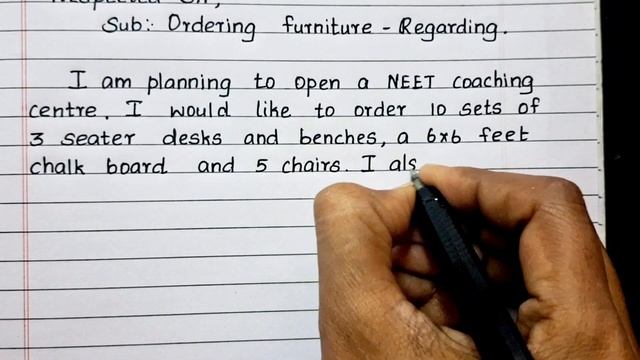 Sub:- Ordering furniture - Regarding.
I am planning to open a NEET coaching
centre. I would like to order 10 sets of
3 seater desks and benches, a 6x6 feet
chalk board and 5 chairs. I als